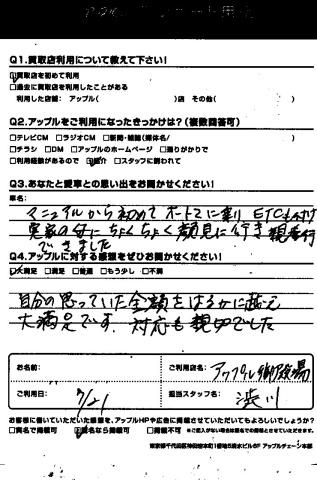 Q1.買取店利用について教えて下さい！
☑買取店を初めて利用
□過去に買取店を利用したことがある
利用した店舗： アップル(　　　)店 その他(　　　)
Q2.アップルをご利用になったきっかけは？(複数回答可)
□テレビCM □ラジオCM □新聞・雑誌(媒体名/　　　)
□チラシ □DM □アップルのホームページ □通りがかりで
□利用経験があるので ☑紹介 □スタッフに誘われて
Q3.あなたと愛車との思い出をお聞かせください！
車名:
マニュアルから初めてオートマに乗り ETCも付け
実家の母にちょくちょく顔見に行き 親孝行
できました
Q4.アップルに対する感想をぜひお聞かせください！
☑大満足 □満足 □普通 □もう少し □不満
自分の思っていた金額をはるかに越え
大満足です. 対応も親切でした
お名前:
ご利用店名: アップル御殿場
ご利用日: 7/21
担当スタッフ名: 渋川
お客様に書いていただいた感想を、アップルHPや広告に掲載させていただいてもよろしいでしょうか？
□実名で掲載可 ☑匿名なら掲載可 □掲載不可
東京都千代田区神田錦本町1番地5清水ビル6F アップルチェーン本部